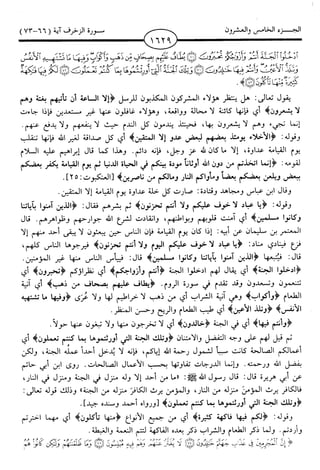 الجزء الخامس والعشرون
١٦٢٩
سورة الزخرف آية (٦٦-٧٣)
يقول تعالى: هل ينتظر هؤلاء المشركون المكذبون للرسل ﴿إلا الساعة أن تأتيهم بغتة وهم
لا يشعرون﴾ أي فإنها كائنة لا محالة وواقعة، وهؤلاء غافلون عنها غير مستعدين. فإذا جاءت
إنما تجيء، وهم لا يشعرون بها، فحينئذ يندمون كل الندم حيث لا ينفعهم ولا يدفع عنهم.
وقوله: ﴿الأخلاء يومئذ بعضهم لبعض عدو إلا المتقين﴾ أي كل صداقة لغير الله فإنها تنقلب
يوم القيامة عداوة، إلا ما كان لله عز وجل، فإنه دائم. وهذا كما قال إبراهيم عليه السلام
لقومه: ﴿إنما اتخذتم من دون الله أوثاناً مودة بينكم في الحياة الدنيا ثم يوم القيامة يكفر بعضكم
ببعض ويلعن بعضكم بعضاً ومأواكم النار ومالكم من ناصرين﴾ [العنكبوت: ٢٥].
وقال ابن عباس ومجاهد وقتادة: صارت كل خلة عداوة يوم القيامة إلا المتقين.
وقوله: ﴿يا عباد لا خوف عليكم اليوم ولا أنتم تحزنون﴾ ثم بشرهم فقال: ﴿الذين آمنوا بآياتنا
وكانوا مسلمين﴾ أي آمنت قلوبهم وبواطنهم، وانقادت لشرع الله جوارحهم وظواهرهم. قال
المعتمر بن سليمان عن أبيه: إذا كان يوم القيامة فإن الناس حين يبعثون لا يبقى أحد منهم إلا
فزع فينادي مناد: ﴿يا عباد لا خوف عليكم اليوم ولا أنتم تحزنون﴾ فيرجوها الناس كلهم،
قال: فيُتبعها ﴿الذين آمنوا بآياتنا وكانوا مسلمين﴾ قال: فييأس الناس منها غير المؤمنين.
﴿ادخلوا الجنة﴾ أي يقال لهم ادخلوا الجنة ﴿أنتم وأزواجكم﴾ أي نظراؤكم ﴿تحبرون﴾ أي
تتنعمون وتسعدون وقد تقدم في سورة الروم. ﴿يطاف عليهم بصحاف من ذهب﴾ أي آنية
الطعام ﴿وأكواب﴾ وهي آنية الشراب أي من ذهب لا خراطيم لها ولا عُرى ﴿وفيها ما تشتهيه
الأنفس﴾ ﴿وتلذ الأعين﴾ أي طيب الطعام والريح وحسن المنظر.
﴿وأنتم فيها﴾ أي في الجنة ﴿خالدون﴾ أي لا تخرجون منها ولا تبغون عنها حولاً.
ثم قيل لهم على وجه التفضل والامتنان ﴿وتلك الجنة التي أورثتموها بما كنتم تعملون﴾ أي
أعمالكم الصالحة كانت سبباً لشمول رحمة الله إياكم، فإنه لا يُدخل أحداً عملُه الجنة، ولكن
بفضل الله ورحمته. وإنما الدرجات تفاوتها بحسب الأعمال الصالحات. روى ابن أبي حاتم
عن أبي هريرة قال: قال رسول الله ﷺ: «ما من أحد إلا وله منزل في الجنة ومنزل في النار،
فالكافر يرث المؤمن منزله من النار، والمؤمن يرث الكافر منزله من الجنة» وذلك قوله تعالى:
﴿وتلك الجنة التي أورثتموها بما كنتم تعملون﴾ [ورواه أحمد وسنده جيد].
وقوله: ﴿لكم فيها فاكهة كثيرة﴾ أي من جميع الأنواع ﴿منها تأكلون﴾ أي مهما اخترتم
وأردتم. ولما ذكر الطعام والشراب ذكر بعده الفاكهة لتتم النعمة والغبطة.